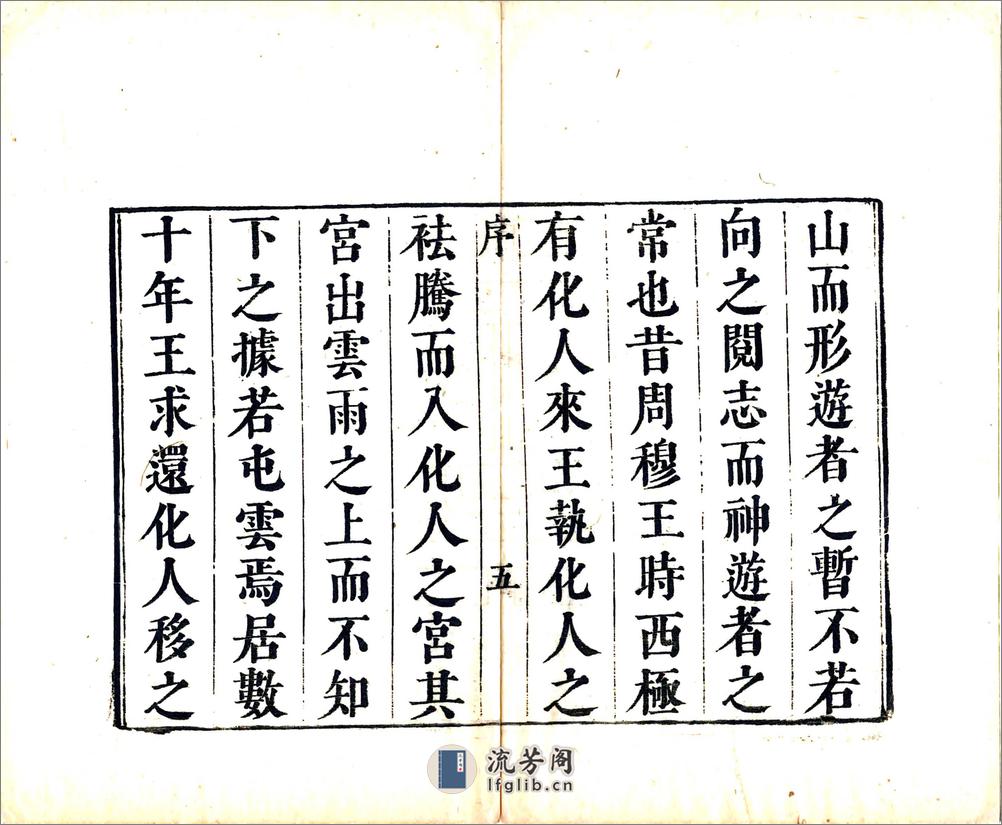 山而形遊者之暫不若
向之閱志而神遊者之
常也昔周穆王時西極
有化人來王執化人之
序 五
袪騰而入化人之宮其
宮出雲雨之上而不知
下之據若屯雲焉居數
十年王求還化人移之
流芳阁
lfglib.cn